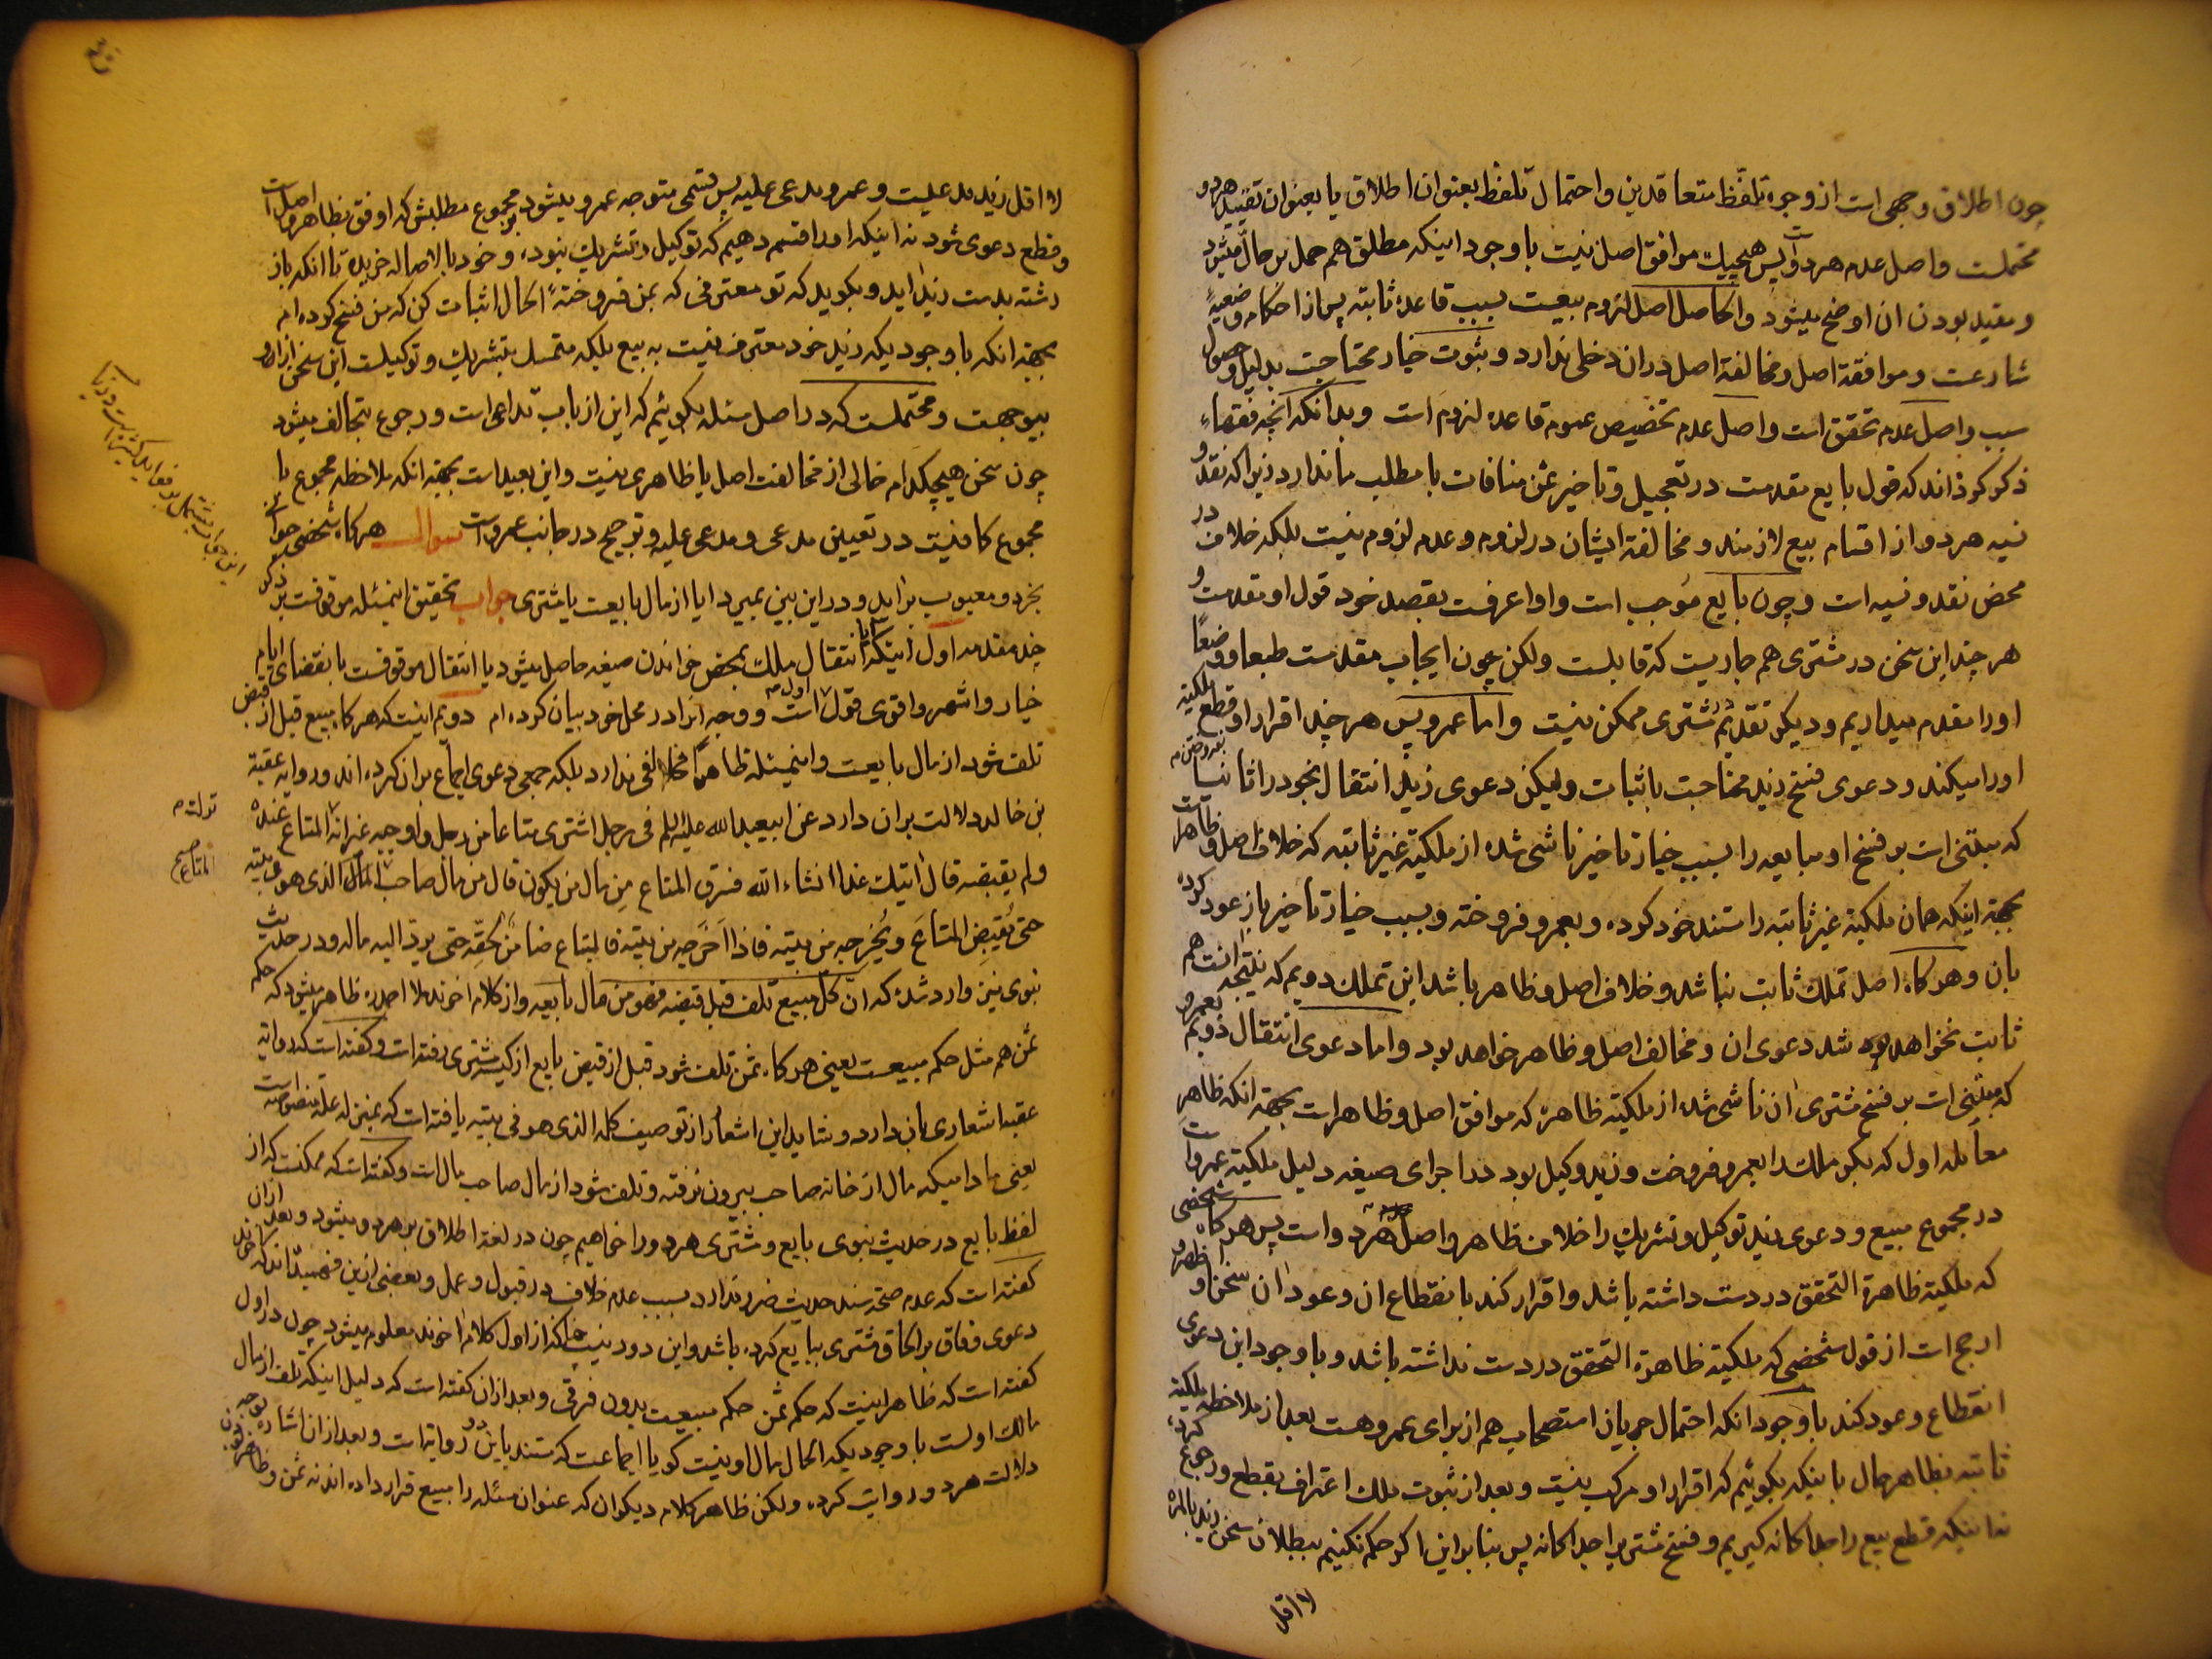 چون اطلاق وجهی است از وجوه تلفّظ متعاقدین و احتمال تلفظ بعنوان اطلاق یا بعنوان تقیید هر دو
محتملست و اصل عدم هر دو است پس هیچیک موافق اصل نیست با وجود اینکه مطلق هم حمل بر حالّ میشود
و مقید بودن ان اوضح میشود والحاصل اصل لزوم بیعست بسبب قاعدهٔ ثابته پس از احکام وضعیهٔ
شارعست و موافقة اصل و مخالفة اصل در ان دخلی ندارد و ثبوت خیار محتاجست بدلیل و حصول
سبب و اصل عدم تحقق است و اصل عدم تخصیص عموم قاعده لزوم است و بدانکه آنچه فقهاء
ذکر کرده‌اند که قول بایع مقدمست در تعجیل و تاخیر ثمن منافات با مطلب ما ندارد زیرا که نقد و
نسیه هر دو از اقسام بیع لازمند و مخالفة ایشان در لزوم و عدم لزوم نیست بلکه خلاف در
محض نقد و نسیه است و چون بایع مُوجب است و او اعرفست بقصد خود قول او مقدمست و
هر چند این سخن در مشتری هم جاریست که قابلست ولکن چون ایجاب مقدمست طبعا و وضعاً
او را مقدم میداریم و دیگر تقدیم مشتری ممکن نیست و اما عمرو پس هر چند اقرار او قطع ملکیة
او را میکند و دعوی فسخ زید محتاجست باثبات ولیکن دعوی زید انتقال بخود را ثانیا
که مبتنی است بر فسخ او مبایعه را بسبب خیار تاخیر ناشی شده از ملکیة غیر ثابته که خلاف اصل و ظاهر است
بجهة اینکه همان ملکیة غیر ثابته را مستند خود کرده و بعمرو فروخته و بسبب خیار تاخیر باز عود کرده
بان و هرکاه اصل تملک ثابت نباشد و خلاف اصل و ظاهر باشد این تملک دویم که نتیجهٔ آنست هم
ثابت نخواهد شد دعوی ان و مخالف اصل و ظاهر خواهد بود و اما دعوی انتقال دویم بعمرو
که مبتنی است بر فسخ مشتری ان ناشی شده از ملکیة ظاهره که موافق اصل و ظاهر است بجهة انکه ظاهر
معامله اول که بکر ملک را بعمرو فروخت و زید وکیل بود در اجرای صیغه دلیل ملکیة عمرو است
در مجموع مبیع و دعوی زید توکیل و تشریک را خلاف ظاهر و اصل هر دو است پس هرکاه شخصی
که ملکیة ظاهرة التحقق در دست داشته باشد و اقرار کند بانقطاع ان و عود ان سخن او اظهر و
ارجح است از قول شخصی که ملکیة ظاهرة التحقق در دست نداشته باشد و با وجود این دعوی
انقطاع و عود کند با وجود انکه احتمال جریان استصحاب هم از برای عمرو هست بعد از ملاحظه ملکیة
ثابته بظاهر حال باینکه بکوئیم که اقرار او مرکب نیست و بعد از ثبوت ملک اعتراف بقطع و رجوع کرده
نه اینکه قطع بیع را جداکانه کیریم و فسخ مشتری را جداکانه پس بنا بر این اکر حکم نکنیم ببطلان سخن زید بالمره
لا اقل
لا اقل زید مدعیست و عمرو مدعی علیه پس قسمی متوجه عمرو میشود بر مجموع مطلبش که اوفق بظاهر و اصل است
و قطع دعوی شود نه اینکه او را قسم دهیم که توکیل و تشریک نبوده و خود بالاصاله خریده تا انکه باز
رشته بدست زید اید و بکوید که تو معترفی که بمن فروختهٔ الحال اثبات کن که من فسخ کرده‌ام
بجهة انکه با وجودیکه زید خود معترف نیست به بیع بلکه متمسک بتشریک و توکیلست این سخن از او
بیوجهست و محتملست که در اصل مسئله بکوئیم که این از باب تداعی است و رجوع بتحالف میشود
چون سخن هیچکدام خالی از مخالفت اصل یا ظاهری نیست و این بعید است بجهة انکه ملاحظه مجموع با
مجموع کافیست در تعیین مدعی و مدعی علیه و ترجیح در جانب عمرو است سوال هرکاه شخصی حیوانی
بخرد و معیوب براید و در این بین بمیرد ایا از مال بایعست یا مشتری جواب تحقیق اینمسئله موقوفست بر ذکر
چند مقدمه اول اینکه ایا انتقال ملک بمحض خواندن صیغه حاصل میشود یا انتقال موقوفست بانقضای ایام
خیار و اشهر و اقوی قول اول است و وجه انرا در محل خود بیان کرده‌ام دویم اینست که هرکاه مبیع قبل از قبض
تلف شود از مال بایعست و اینمسئله ظاهرًا مخالفی ندارد بلکه جمعی دعوی اجماع بر ان کرده‌اند و روایة عقبة
بن خالد دلالت بر ان دارد عن ابیعبدالله علیه السلم فی رجل اشتری متاعا من رجل و اوجبه غیر انه المتاع عنده
ولم یقبضه قال اتیک غدا انشاء الله فسرق المتاع مِن مال من یکون قال من مال صاحب المتاع الذی هو فی بیته
حتی یُقبضَ المتاعَ و یُخرجه من بیته فاذا اخرَجه من بیته فالمبتاع ضامن لحقّه حتی یردّ الیه ماله و در حدیث
نبوی نیز وارد شده که انّ کل مبیع تلف قبل قبضه فهو من مال بایعه و از کلام اخوند ملا احمد ره ظاهر میشود که حکم
ثمن هم مثل حکم مبیعست یعنی هرکاه ثمن تلف شود قبل از قبض بایع از کیسه مشتری رفته است و کفته است که روایة
عقبه اشعاری بان دارد و شاید این اشعار از توصیف کلمه الذی هو فی بیته یافته است که بمنزله علة منصوصه است
یعنی مادامیکه مال از خانه صاحب بیرون نرفته و تلف شود از مال صاحب مال است و کفته است که ممکنست که از
لفظ بایع در حدیث نبوی بایع و مشتری هر دو را خواهیم چون در لغة اطلاق بر هر دو میشود و بعد از ان
کفته است که عدم صحة سند حدیث ضرر ندارد بسبب عدم خلاف در قبول و عمل و بعضی ازین فهمیده‌اند که اخوند
دعوی وفاق بر الحاق مشتری ببایع کرده باشد و این دور نیست چنانکه از اول کلام اخوند معلوم میشود چون در اول
کفته است که ظاهر اینست که حکم ثمن حکم مبیعست بدون فرقی و بعد از ان کفته است که دلیل اینکه تلف از مال
مالک اولست با وجودیکه الحال مال او نیست کویا اجماعست که مستند باین دو روایة است و بعد از ان اشاره بوجه
دلالت هر دو روایت کرده ولکن ظاهر کلام دیکران که عنوان مسئله را مبیع قرار داده‌اند نه ثمن و ظاهر
المتاع صح